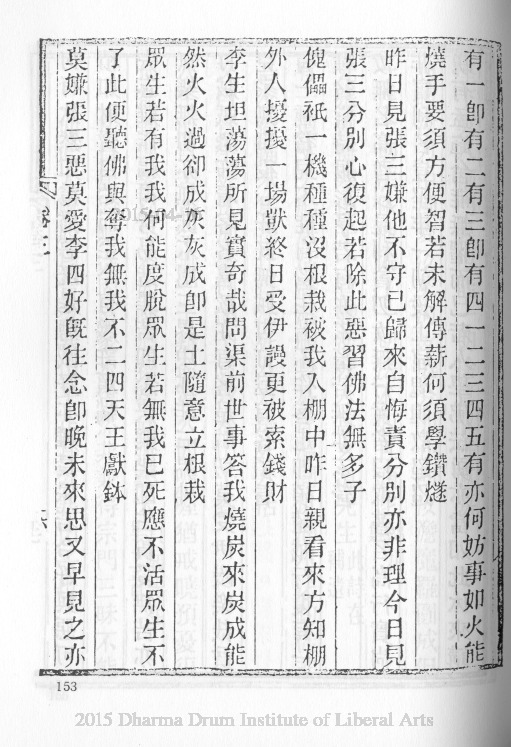 有一卽有二有三卽有四一二三四五有亦何妨事如火能
燒手要須方便智若未解傳薪何須學鑽燧
昨日見張三嫌他不守己歸來自悔責分別亦非理今日見
張三分別心復起若除此惡習佛法無多子
傀儡祇一機種種沒根栽被我入棚中昨日親看來方知棚
外人擾擾一場獃終日受伊謾更被索錢財
李生坦蕩蕩所見實奇哉問渠前世事答我燒炭來炭成能
然火火過卻成灰灰成卽是土隨意立根栽
眾生若有我我何能度脫眾生若無我已死應不活眾生不
了此便聽佛與奪我無我不二四天王獻鉢
莫嫌張三惡莫愛李四好旣往念卽晚未來思又早見之亦
卷三
六
153
2015 Dharma Drum Institute of Liberal Arts